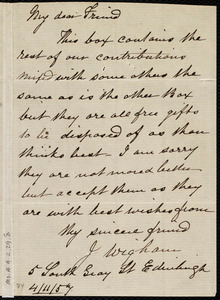 My dear Friend
This box contains the
rest of our contributions
mix'd with some others the
same as is the other Box
but they are all free gifts
to be disposed of as thou
thinks best I am sorry
they are not more & better
but accept them as they
are with best wishes from
thy sincere friend
J Wigham
5 South Gray St Edinburgh
4/11/57